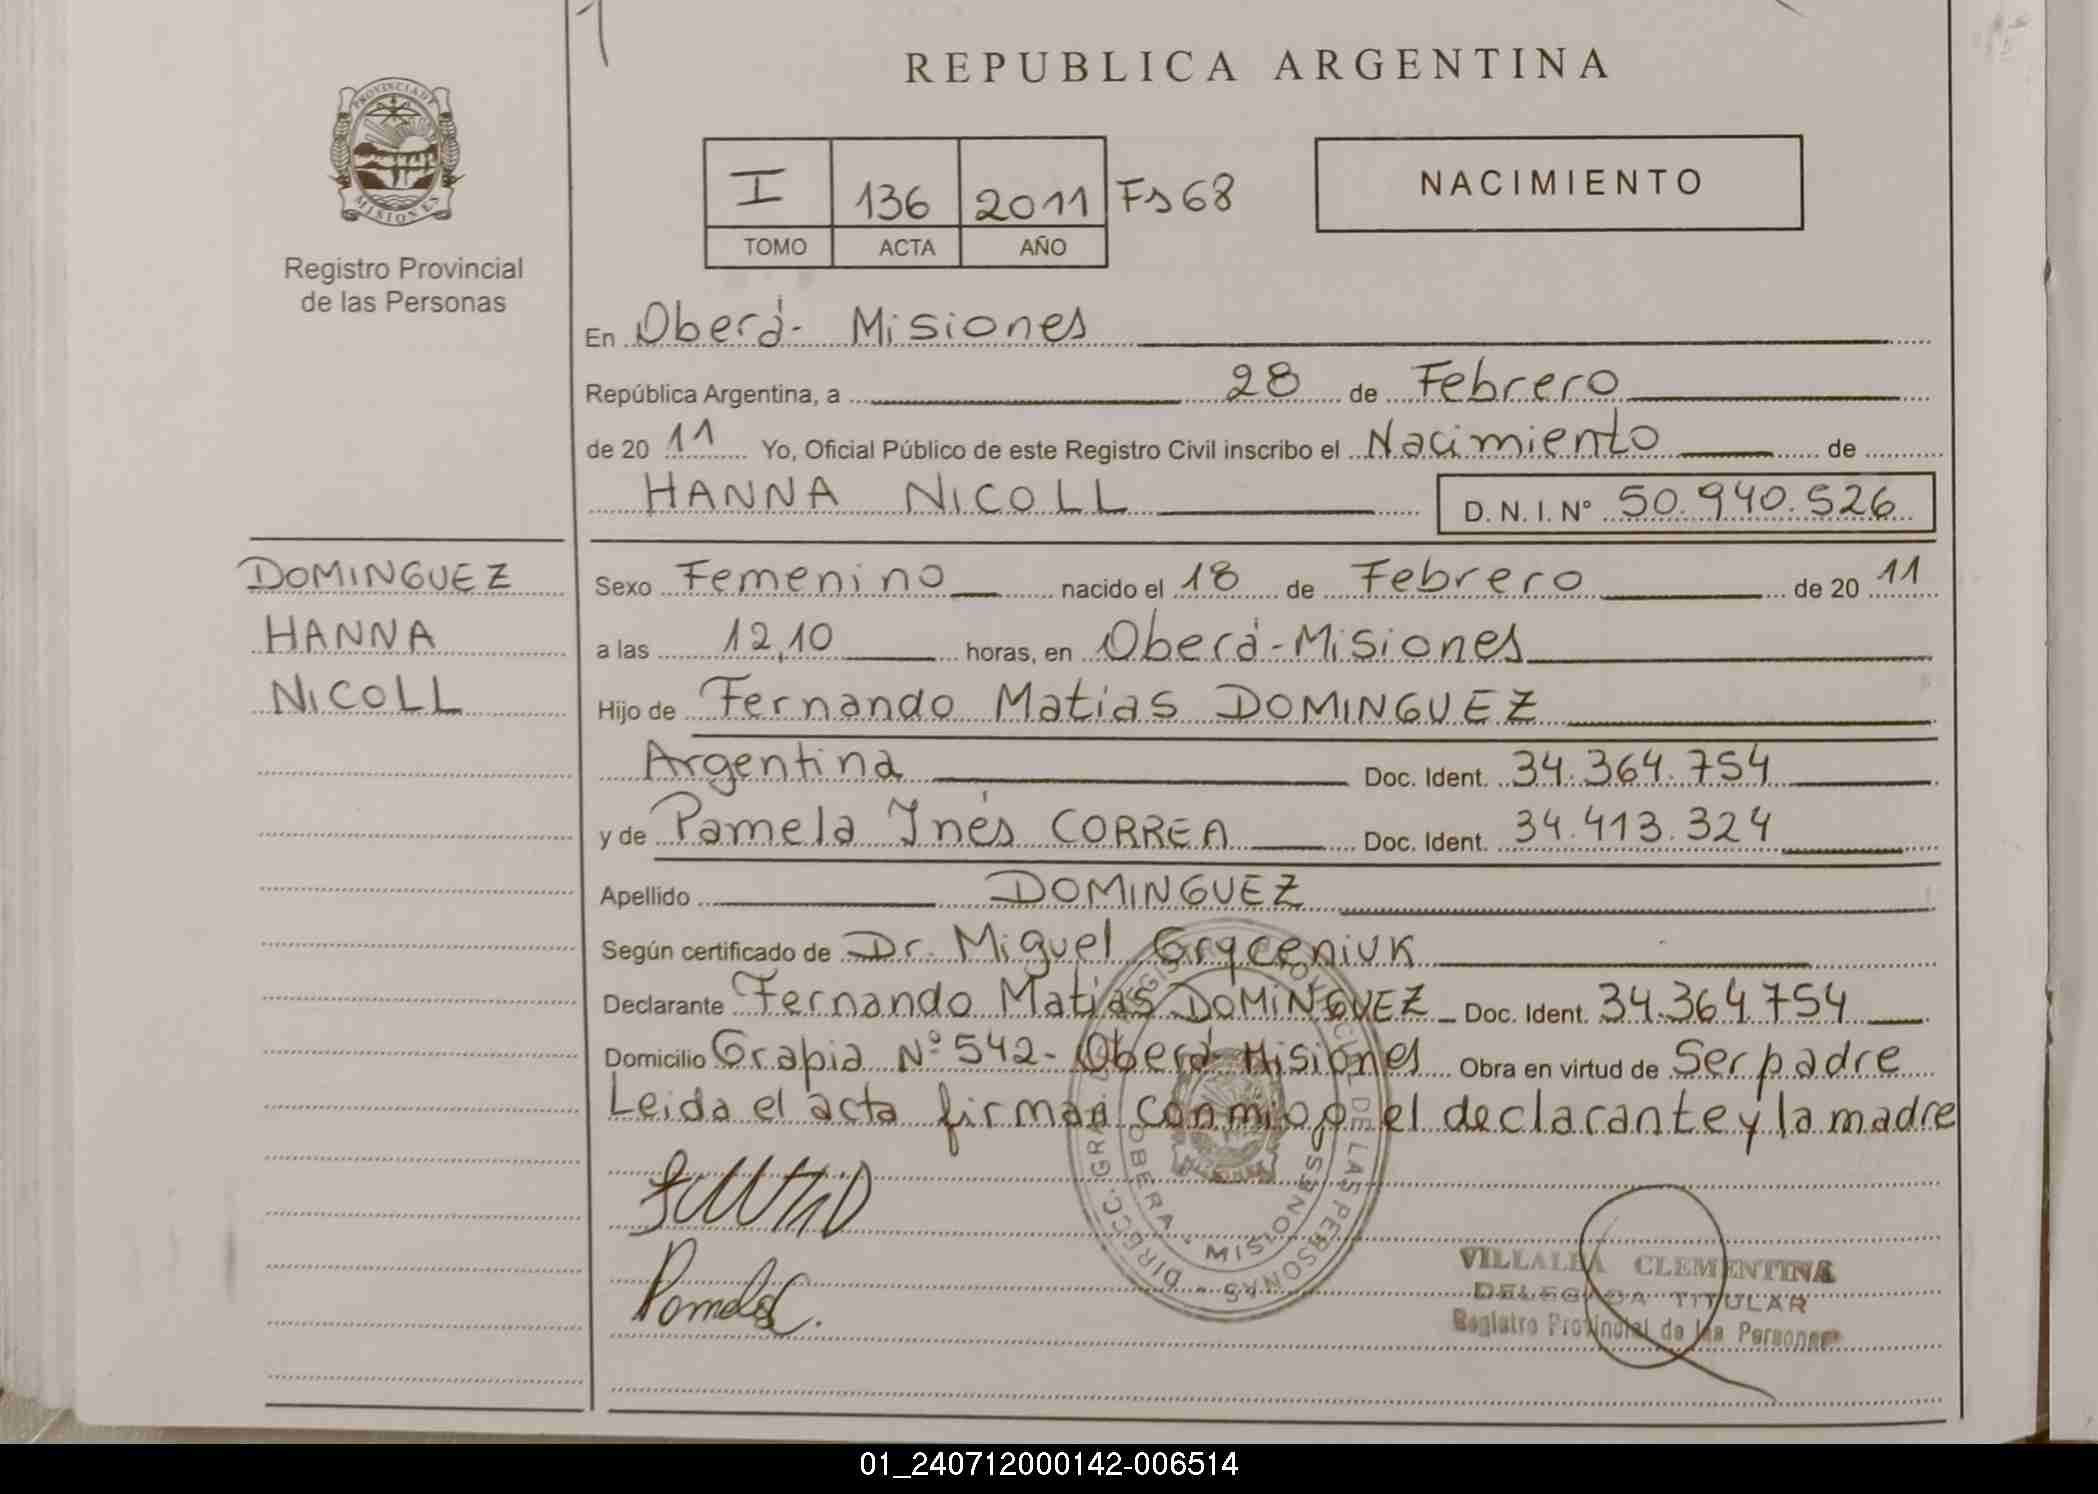 REPUBLICA ARGENTINA
PROVINCIA DE MISIONES
Registro Provincial
de las Personas
I 136 2011 Fs 68
TOMO ACTA AÑO
NACIMIENTO
En Oberá - Misiones
República Argentina, a 28 de Febrero
de 20 11 Yo, Oficial Público de este Registro Civil inscribo el Nacimiento de
HANNA NICOLL D.N.I. Nº 50.940.526
DOMINGUEZ
HANNA
NICOLL
Sexo Femenino nacido el 18 de Febrero de 20 11
a las 12,10 horas, en Oberá - Misiones
Hijo de Fernando Matias DOMINGUEZ
Argentina Doc. Ident. 34.364.754
y de Pamela Inés CORREA Doc. Ident. 34.413.324
Apellido DOMINGUEZ
Según certificado de Dr. Miguel Gryceniuk
Declarante Fernando Matias DOMINGUEZ Doc. Ident. 34.364.754
Domicilio Grapia Nº 542 - Oberá Misiones Obra en virtud de Ser padre
Leida el acta firman conmigo el declarante y la madre
DIRECC. GRAL. DE REGISTRO PROVINCIAL DE LAS PERSONAS
OBERA - MISIONES
Pamela C.
VILLALBA CLEMENTINA
DELEGADA TITULAR
Registro Provincial de las Personas
01_240712000142-006514